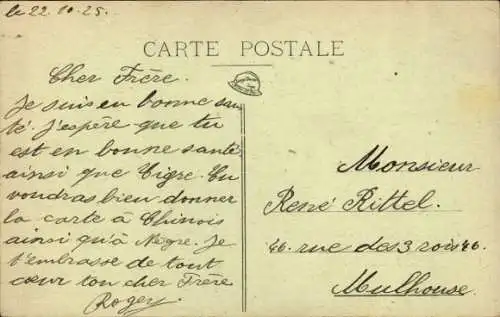 le 22.10.25.
CARTE POSTALE
Cher Frère.
Je suis en bonne san
té. J'espère que tu
est en bonne santé
ainsi que Tigre. Tu
voudras bien donner
la carte à Chinois
ainsi qu'à Nègre. Je
t'embrasse de tout
cœur ton cher Frère
Roger
Monsieur
René Rittel.
46. rue des 3 rois 46.
Mulhouse.